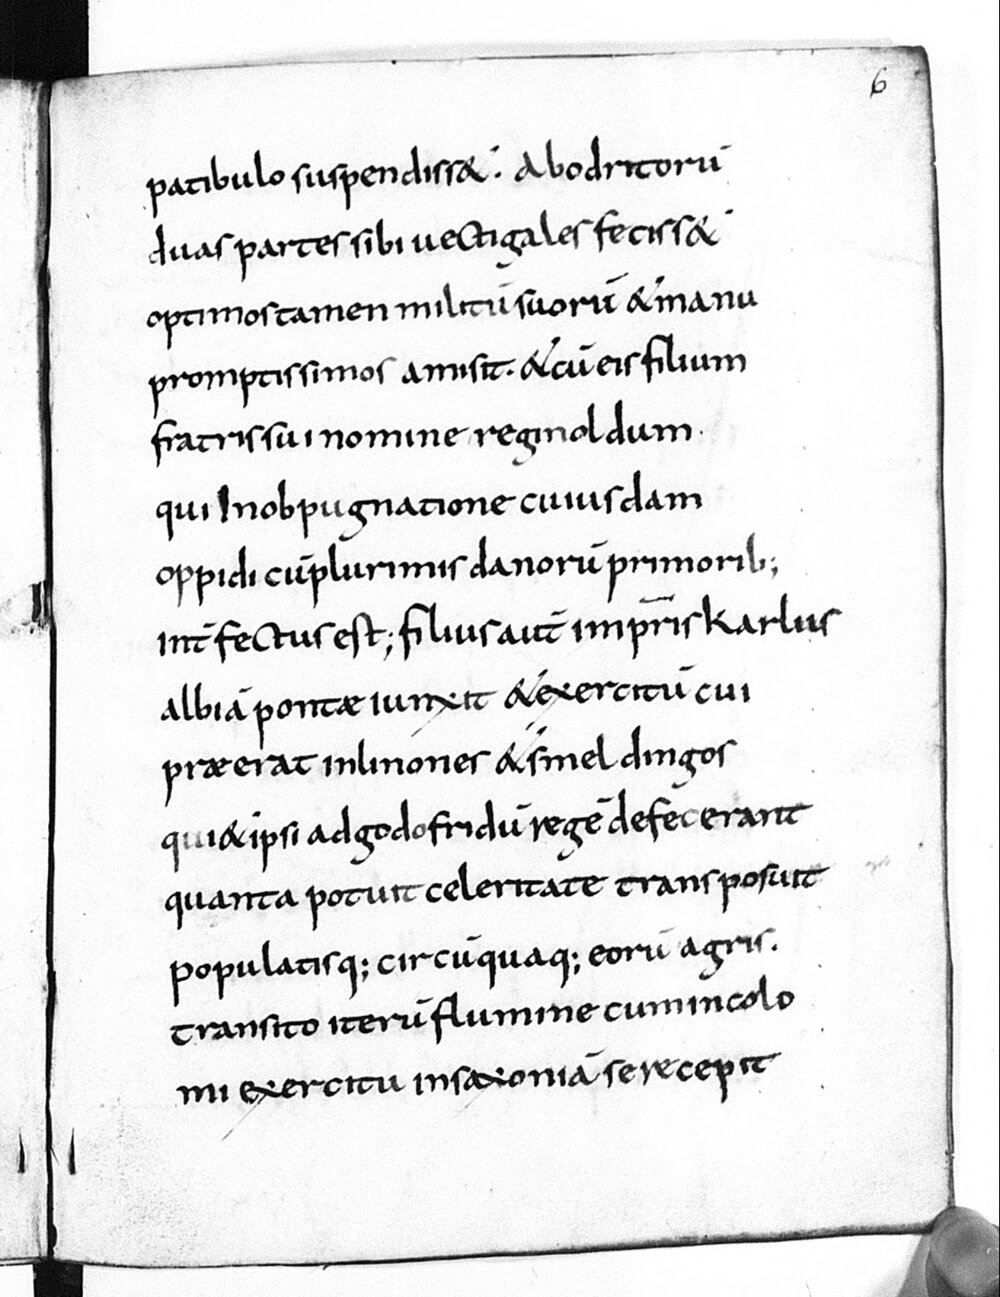 6
patibulo suspendiss&. Abodritorū
duas partes sibi uectigales feciss&
optimos tamen militū suorū & manu
promptissimos amisit. & cū eis filium
fratris sui nomine reginoldum
qui Inobpugnatione cuiusdam
oppidi cū plurimis danorū primorib;
int̄fectus est; filius aut̄ imp̄ris Karlus
albiā pontæ iunxit & exercitū cui
præerat inlinones & smeldingos
qui & ipsi adgodofridū regē defecerant
quanta potuit celeritate transposuit
populatisq; circūquaq; eorū agris.
transito iterū flumine cumincolo
mi exercitu insaxoniā se recepit